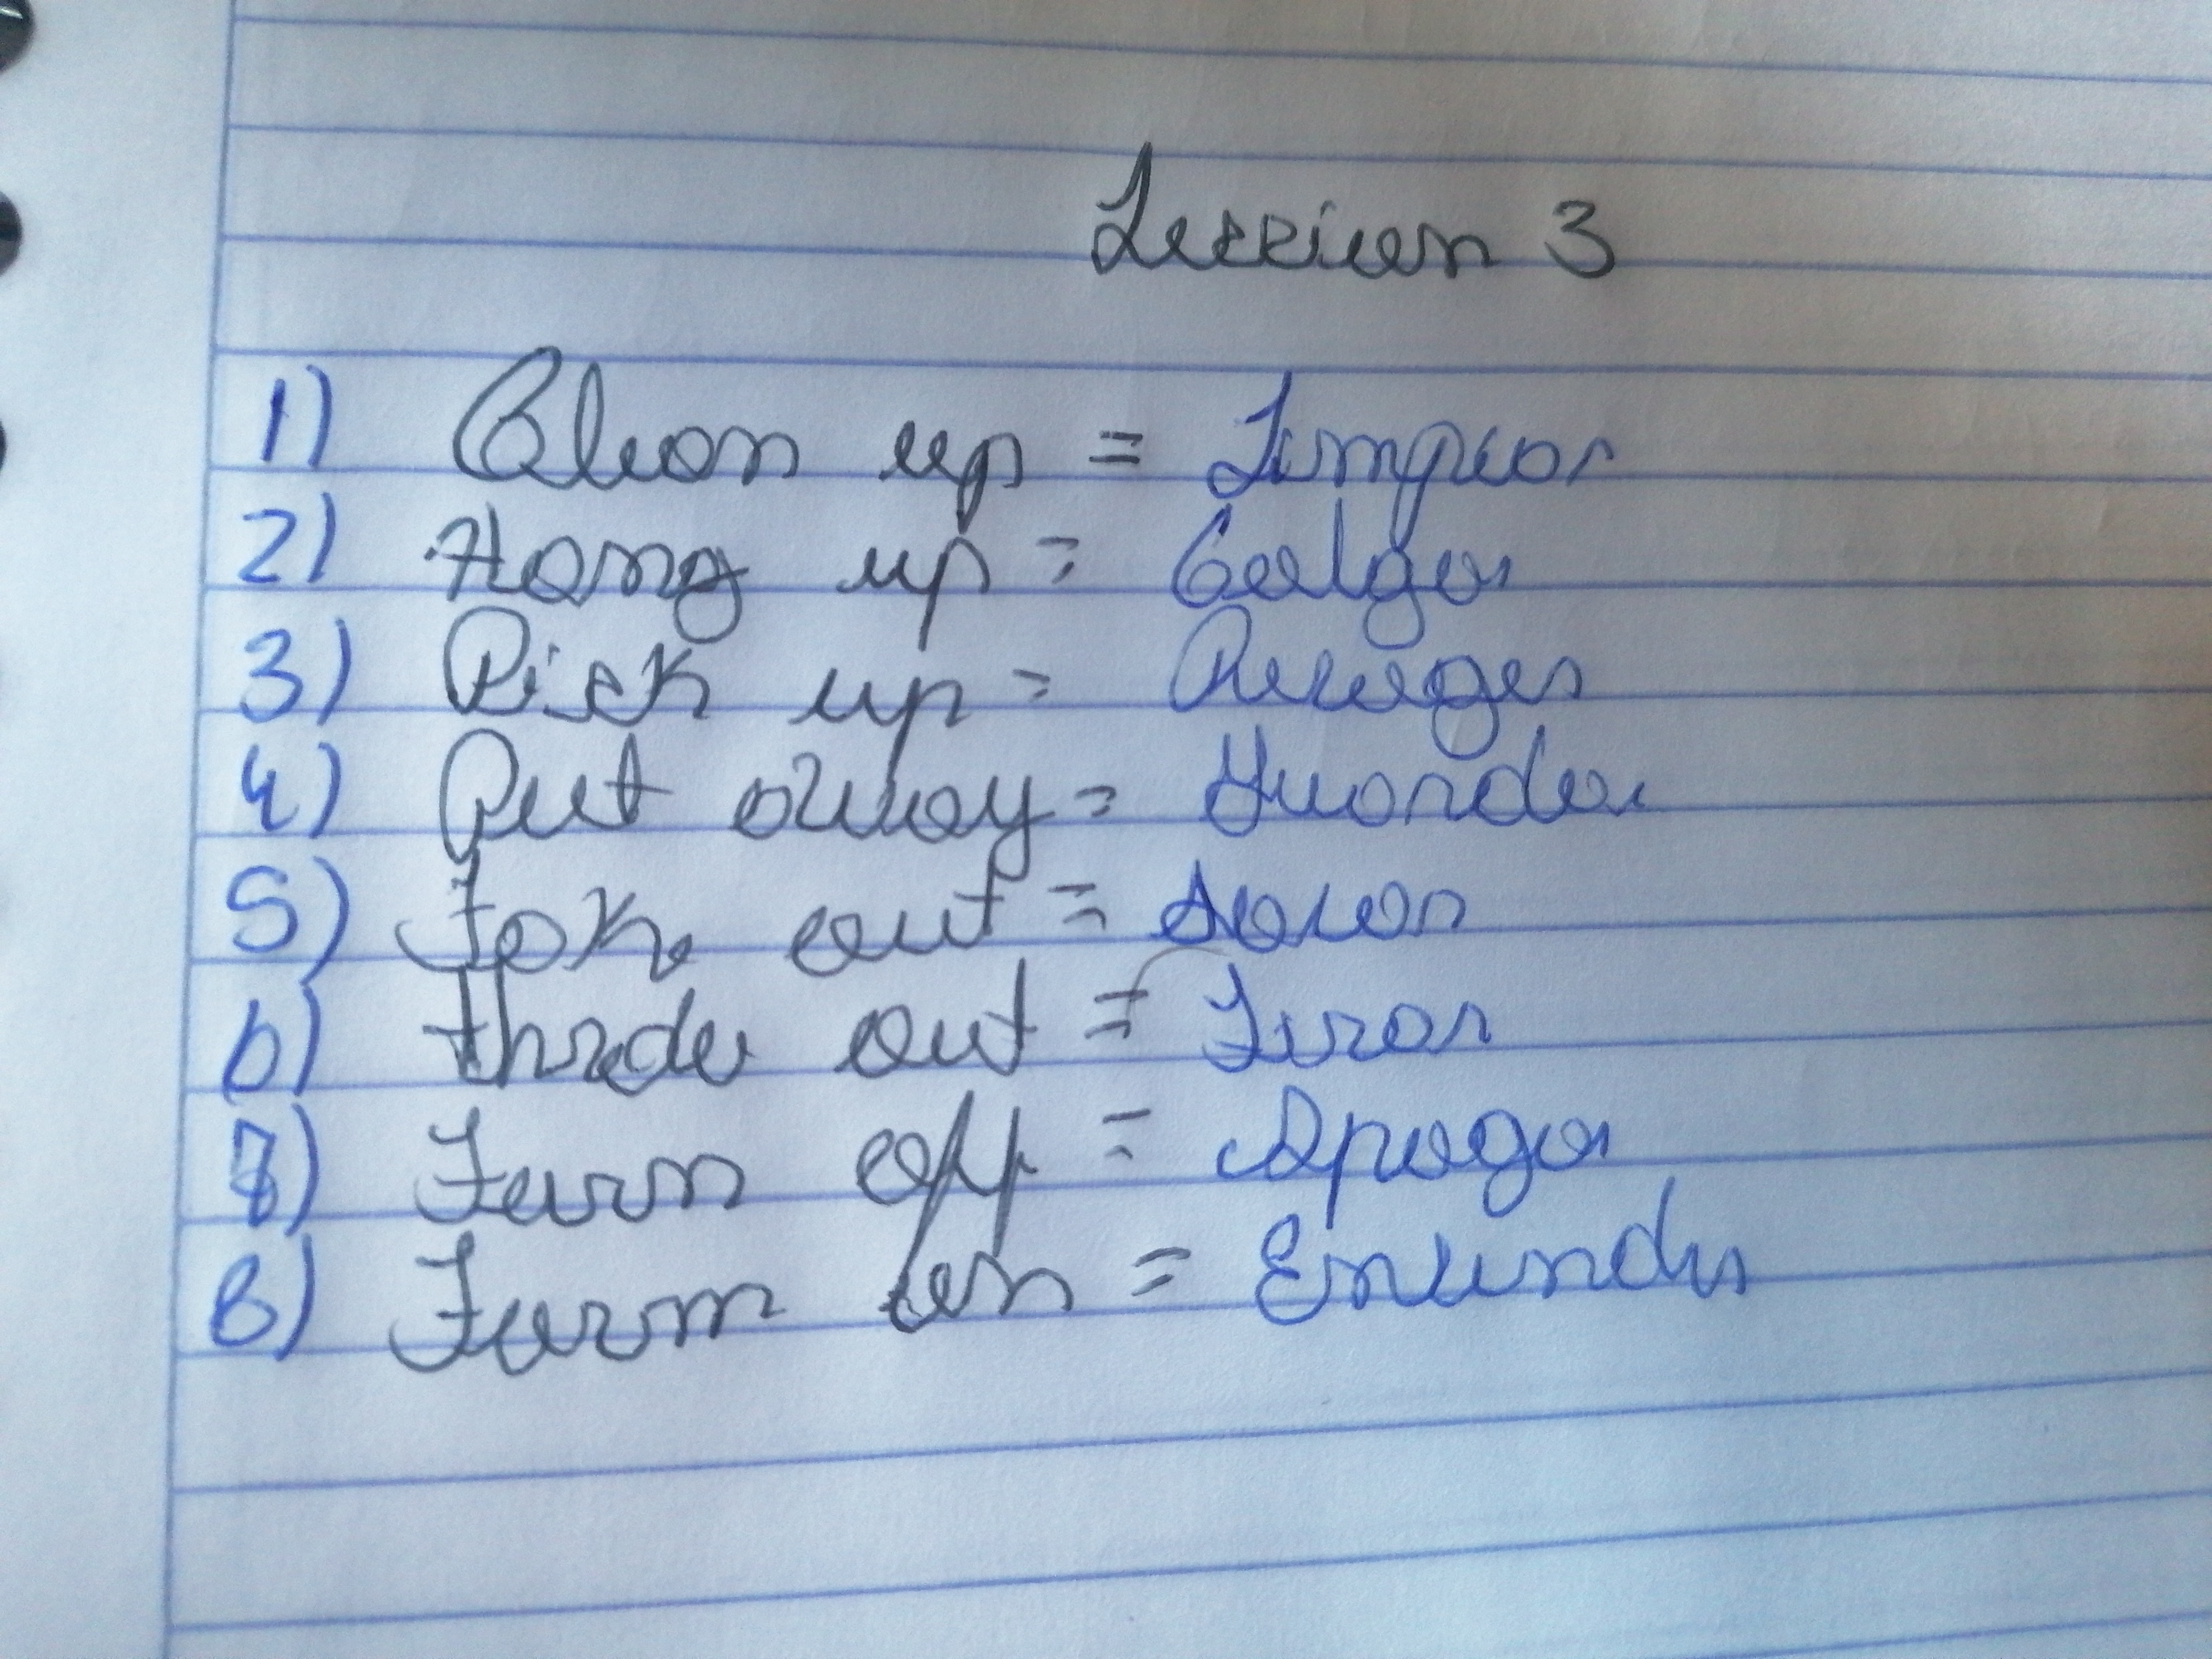 Leccion 3
1) Clean up = Limpiar
2) Hang up = Colgar
3) Pick up = Recoger
4) Put away = Guardar
5) Take out = Sacar
6) out = Tirar
7) Turn off = Apagar
8) Turn on = Encender